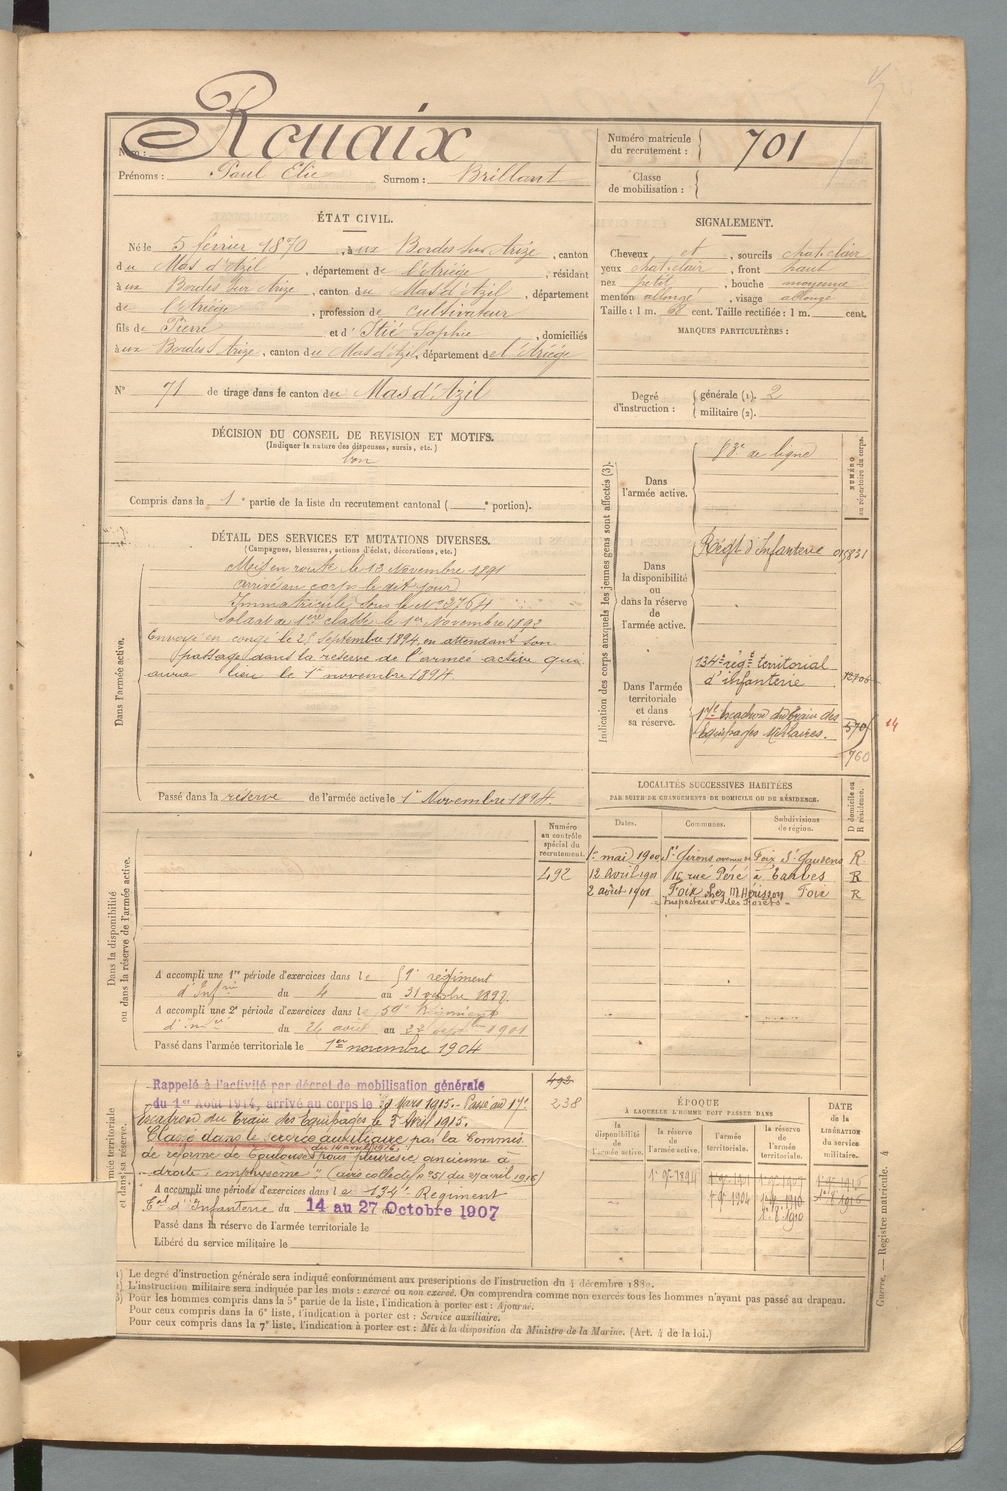 Rouaix
Nom :
Prénoms : Paul Elie Surnom : Brillant
Numéro matricule du recrutement : 701
Classe de mobilisation :
ÉTAT CIVIL.
Né le 5 février 1870, à ux Bordes sur Arize, canton
du Mas d'Azil, département de l'Ariège, résidant
à ux Bordes sur Arize, canton du Mas d'Azil, département
de l'Ariège, profession de cultivateur
fils de Pierre et d' Itié Sophie, domiciliés
à ux Bordes s Arize, canton du Mas d'Azil, département de l'Ariège
SIGNALEMENT.
Cheveux et, sourcils chat. clair
yeux chat. clair, front haut
nez petit, bouche moyenne
menton allongé, visage allongé
Taille : 1 m. 68 cent. Taille rectifiée : 1 m. cent.
MARQUES PARTICULIÈRES :
N° 71 de tirage dans le canton du Mas d'Azil
Degré d'instruction : générale (1). 2
militaire (2).
DÉCISION DU CONSEIL DE REVISION ET MOTIFS.
(Indiquer la nature des dispenses, sursis, etc.)
bon
Compris dans la 1e partie de la liste du recrutement cantonal ( e portion).
DÉTAIL DES SERVICES ET MUTATIONS DIVERSES.
(Campagnes, blessures, actions d'éclat, décorations, etc.)
Dans l'armée active.
Mis en route le 13 Novembre 1891
arrivé au corps le dit jour
Immatriculé sous le N° 3764
Soldat de 1ère classe le 1er Novembre 1892
Envoyé en congé le 25 Septembre 1894, en attendant son
passage dans la réserve de l'armée active qui
aura lieu le 1er novembre 1894.
Passé dans la réserve de l'armée active le 1er Novembre 1894.
Indication des corps auxquels les jeunes gens sont affectés (3).
NUMÉRO au répertoire du corps.
Dans l'armée active.
83e de ligne
Dans la disponibilité ou dans la réserve de l'armée active.
Régt d'Infanterie
Dans l'armée territoriale et dans sa réserve.
134e régt territorial
d'infanterie
17e Escadron du train des
Equipages Militaires.
760
14
LOCALITÉS SUCCESSIVES HABITÉES
PAR SUITE DE CHANGEMENTS DE DOMICILE OU DE RÉSIDENCE.
D domicile ou R résidence.
Dates. Communes. Subdivisions de région.
1er mai 1900 St Girons Foix St Gaudens R
12 Avril 1901 15 rue Péré à Tarbes R
2 août 1901 Foix chez M. Hérisson Foix R
Inspecteur des Forêts
Dans la disponibilité ou dans la réserve de l'armée active.
Numéro au contrôle spécial du recrutement.
492
A accompli une 1re période d'exercices dans le 59e régiment
d'Infrie du 4 au 31 octobre 1897.
A accompli une 2e période d'exercices dans le 59e Régiment
du 26 août au 22 septbre 1901
Passé dans l'armée territoriale le 1er novembre 1904
Rappelé à l'activité par décret de mobilisation générale
du 1er Août 1914, arrivé au corps le Mars 1915. - Passé au 17e
Escadron du Train des Equipages le 3 Avril 1915.
Classé dans le service auxiliaire par la Commis.
de réforme de Toulouse du 14 avril 1916 pour pleurésie ancienne à
droite, emphysème (avis collectif n° 51 du 27 avril 1916)
492
238
A accompli une période d'exercices dans le 134e Régiment
Tal d'Infanterie du 14 au 27 Octobre 1907
Passé dans la réserve de l'armée territoriale le
Libéré du service militaire le
ÉPOQUE
À LAQUELLE L'HOMME DOIT PASSER DANS
DATE de la LIBÉRATION du service militaire.
la disponibilité de l'armée active.
la réserve de l'armée active.
l'armée territoriale.
la réserve de l'armée territoriale.
1er 9bre 1894
1) Le degré d'instruction générale sera indiqué conformément aux prescriptions de l'instruction du 4 décembre 1889.
2) L'instruction militaire sera indiquée par les mots : exercé ou non exercé. On comprendra comme non exercés tous les hommes n'ayant pas passé au drapeau.
3) Pour les hommes compris dans la 5e partie de la liste, l'indication à porter est : Ajourné.
Pour ceux compris dans la 6e liste, l'indication à porter est : Service auxiliaire.
Pour ceux compris dans la 7e liste, l'indication à porter est : Mis à la disposition du Ministre de la Marine. (Art. 4 de la loi.)
Guerre. — Registre matricule. 4